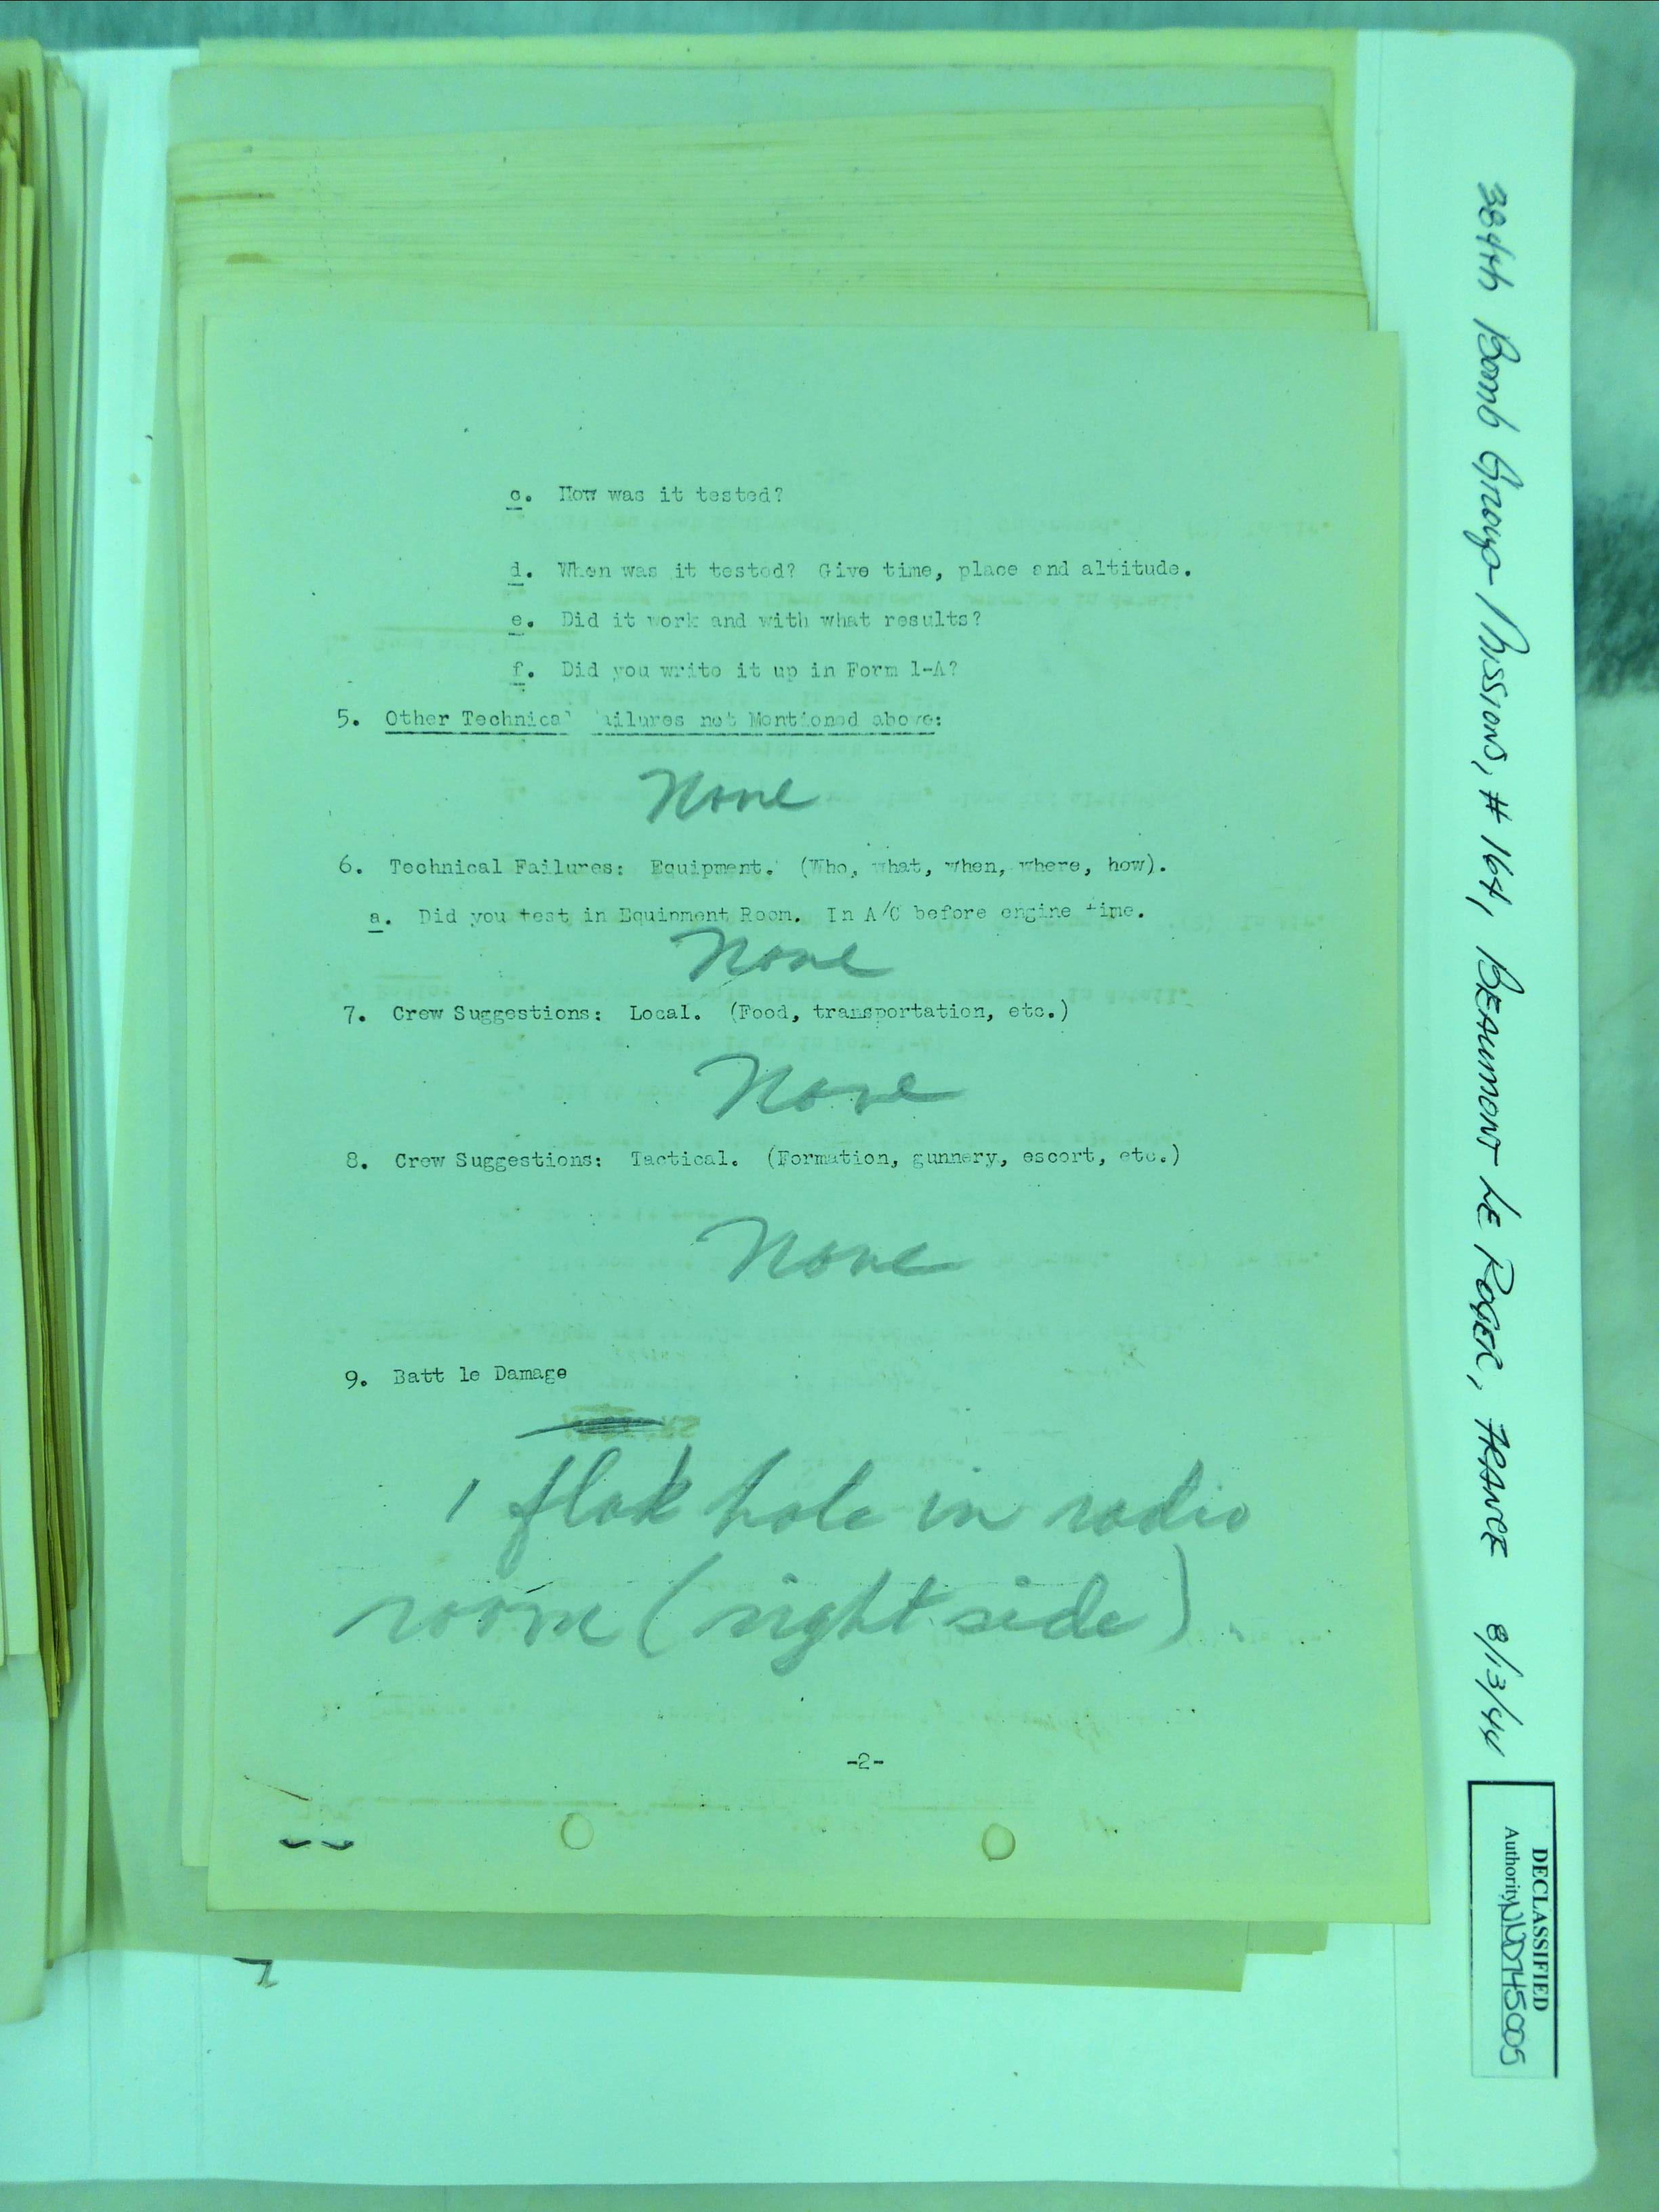 c. How was it tested?
d. When was it tested? Give time, place and altitude.
e. Did it work and with what results?
f. Did you write it up in Form 1-A?
5. Other Technical ailures not Mentioned above:
None
6. Technical Failures: Equipment. (Who, what, when, where, how).
a. Did you test in Equipment Room. In A/C before engine time.
None
7. Crew Suggestions: Local. (Food, transportation, etc.)
None
8. Crew Suggestions: Tactical. (Formation, gunnery, escort, etc.)
None
9. Batt le Damage
1 flak hole in radio
room (right side)
-2-
384th Bomb Group Missions, # 164, BEAUMONT LE ROGER, FRANCE 8/13/44
DECLASSIFIED
Authority NND745005